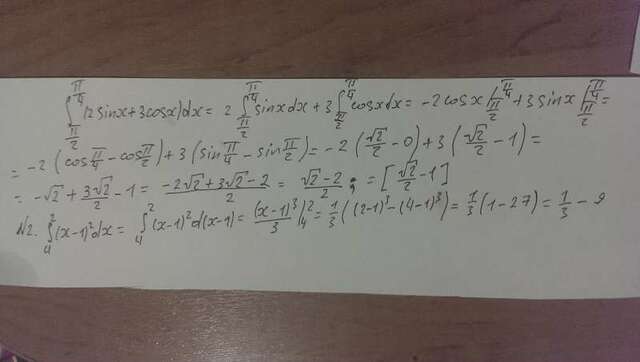 ∫_{π/2}^{π/4} (2 sinx + 3cosx)dx = 2 ∫_{π/2}^{π/4} sinx dx + 3 ∫_{π/2}^{π/4} cosx dx = -2 cosx |_{π/2}^{π/4} + 3 sinx |_{π/2}^{π/4} =
= -2 (cos π/4 - cos π/2) + 3 (sin π/4 - sin π/2) = -2 (√2/2 - 0) + 3 (√2/2 - 1) =
= -√2 + 3√2/2 - 1 = (-2√2 + 3√2 - 2)/2 = (√2 - 2)/2 ; = [√2/2 - 1]
N2. ∫_4^2 (x-1)² dx = ∫_4^2 (x-1)² d(x-1) = (x-1)³/3 |_4^2 = 1/3 ((2-1)³ - (4-1)³) = 1/3 (1-27) = 1/3 - 9